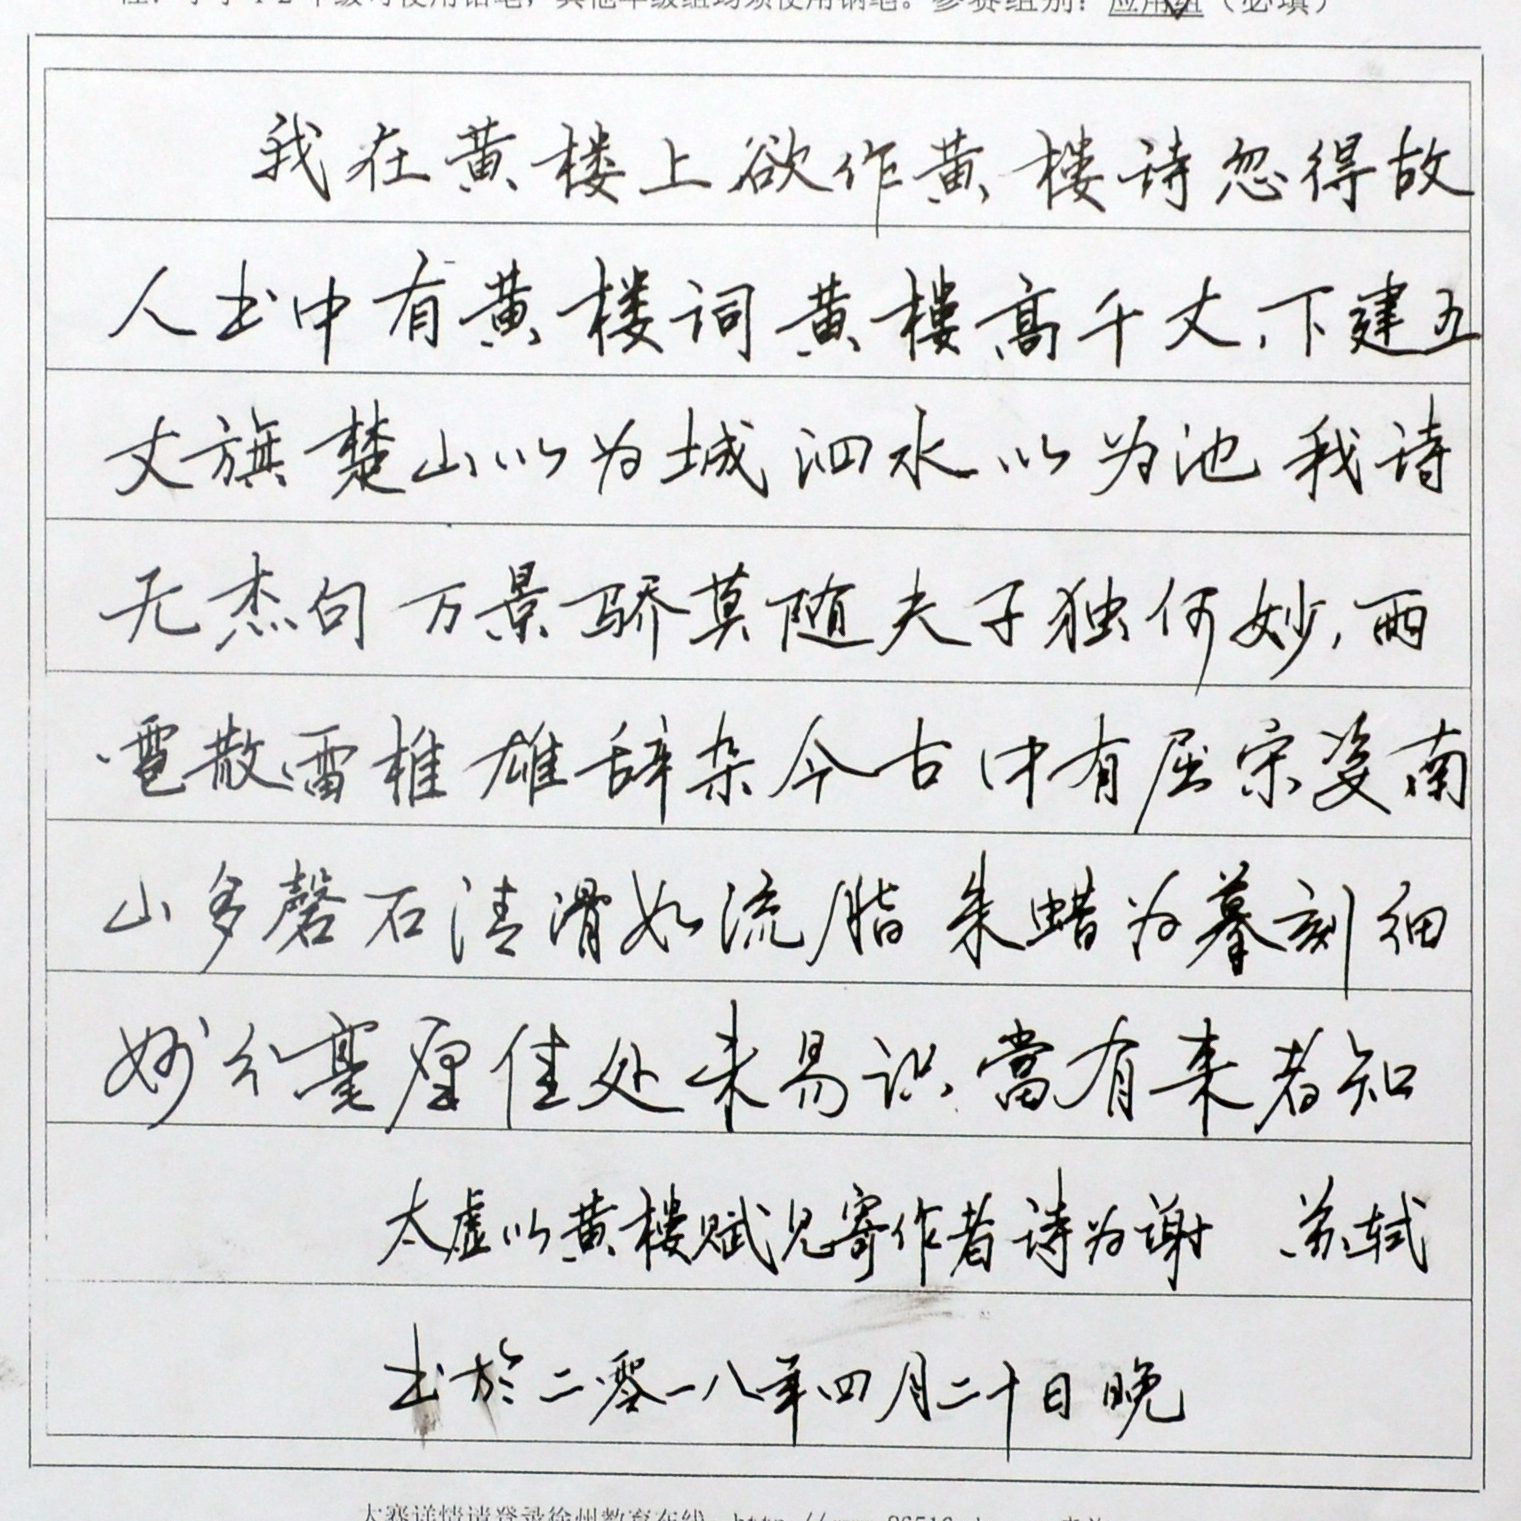 注：小学1-2年级可使用铅笔，其他年级组均须使用钢笔。参赛组别：应用组（必填）
我在黄楼上欲作黄楼诗忽得故
人书中有黄楼词黄樓高千丈，下建五
丈旗楚山以为城泗水以为池我诗
无杰句万景骄莫随夫子独何妙，雨
雹散雷椎雄辞杂今古中有屈宋姿南
山多磬石清滑如流脂朱蜡为摹刻细
妙分毫厘佳处未易识當有来者知
太虚以黄楼赋见寄作者诗为谢 苏轼
书於二零一八年四月二十日晚
大赛详情请登录徐州教育在线